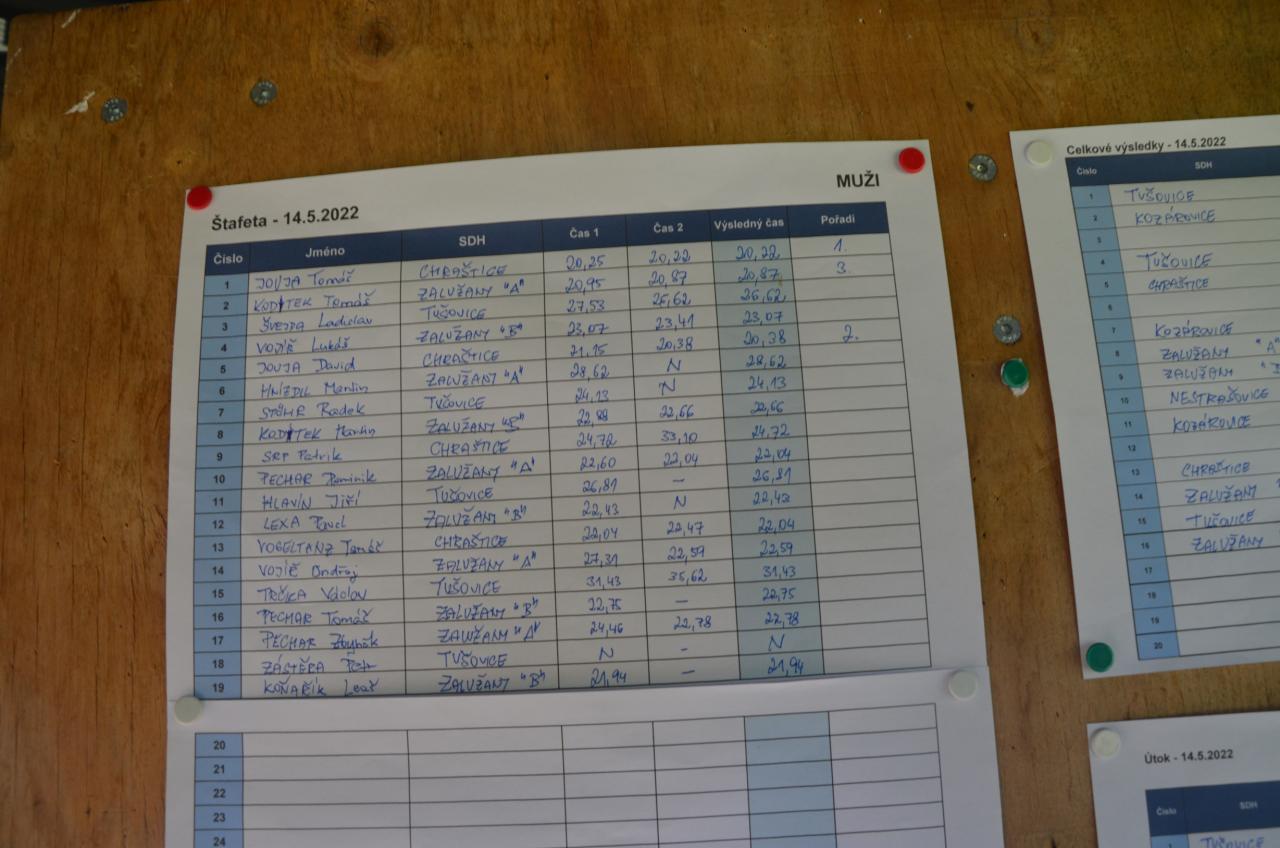 MUŽI
Štafeta - 14.5.2022
Číslo Jméno SDH Čas 1 Čas 2 Výsledný čas Pořadí
1 JOUJA Tomáš CHRAŠTICE 20,25 20,22 20,22 1.
2 KODYTEK Tomáš ZALUŽANY "A" 20,95 20,87 20,87 3.
3 Ladislav TUŠOVICE 27,53 26,62 26,62
4 VOJÍŘ Lukáš ZALUŽANY "B" 23,07 23,41 23,07
5 JOUJA David CHRAŠTICE 21,15 20,38 20,38 2.
6 HNÍZDIL Martin ZALUŽANY "A" 28,62 N 28,62
7 STÖHR Radek TUŠOVICE 24,13 N 24,13
8 KODYTEK Martin ZALUŽANY "B" 22,88 22,66 22,66
9 SRP Patrik CHRAŠTICE 24,72 33,10 24,72
10 PECHAR Dominik ZALUŽANY "A" 22,60 22,04 22,04
11 HLAVÍN Jiří TUŠOVICE 26,81 – 26,81
12 LEXA Pavel ZALUŽANY "B" 22,43 N 22,43
13 VOGELTANZ Tomáš CHRAŠTICE 22,04 22,47 22,04
14 VOJÍŘ Ondřej ZALUŽANY "A" 27,31 22,59 22,59
15 TRČKA Václav TUŠOVICE 31,43 35,62 31,43
16 PECHAR Tomáš ZALUŽANY "B" 22,75 – 22,75
17 PECHAR Zbyněk ZALUŽANY "A" 24,46 22,78 22,78
18 ZÁSTĚRA Petr TUŠOVICE N - N
19 KOŇAŘÍK Leoš ZALUŽANY "B" 21,94 – 21,94
20
21
22
23
24
Celkové výsledky - 14.5.2022
Číslo SDH
1 TUŠOVICE
2 KOZÁROVICE
3
4 TUŠOVICE
5 CHRAŠTICE
7 KOZÁROVICE
8 ZALUŽANY "A"
9 ZALUŽANY
10 NESTRAŠOVICE
11 KOZÁROVICE
12
13 CHRAŠTICE
14 ZALUŽANY
15 TUŠOVICE
16 ZALUŽANY
17
18
19
20
Útok - 14.5.2022
Číslo SDH
1 TUŠOVICE